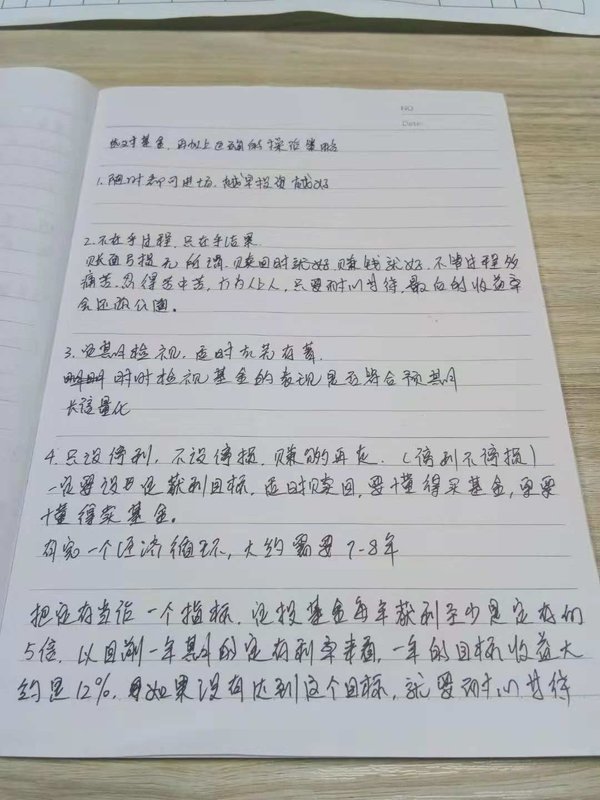 NO.
Date:
定投基金,再加上正确的操作策略
1.随时都可进场,越早投资越好
2.不在乎过程,只在乎结果
账面亏损无所谓,赎回时就好,赚钱就好,不管过程多
痛苦,忍得苦中苦,方为人上人,只要耐心等待,最后的收益率
会还你公道。
3.定期检视,适时加芜存菁
时时检视基金的表现是否符合预期
长这量化
4.只设停利,不设停损,赚够再走.(停利不停损)
一定要设定获利目标,适时赎回,要懂得买基金,更要
懂得卖基金。
有完一个经济循环,大约需要7-8年
把定存当作一个指标,定投基金每年获利至少是定存的
5倍,以目测一年期的定存利率来看,一年的目标收益大
约是12%.如果没有达到这个目标,就要耐心等待